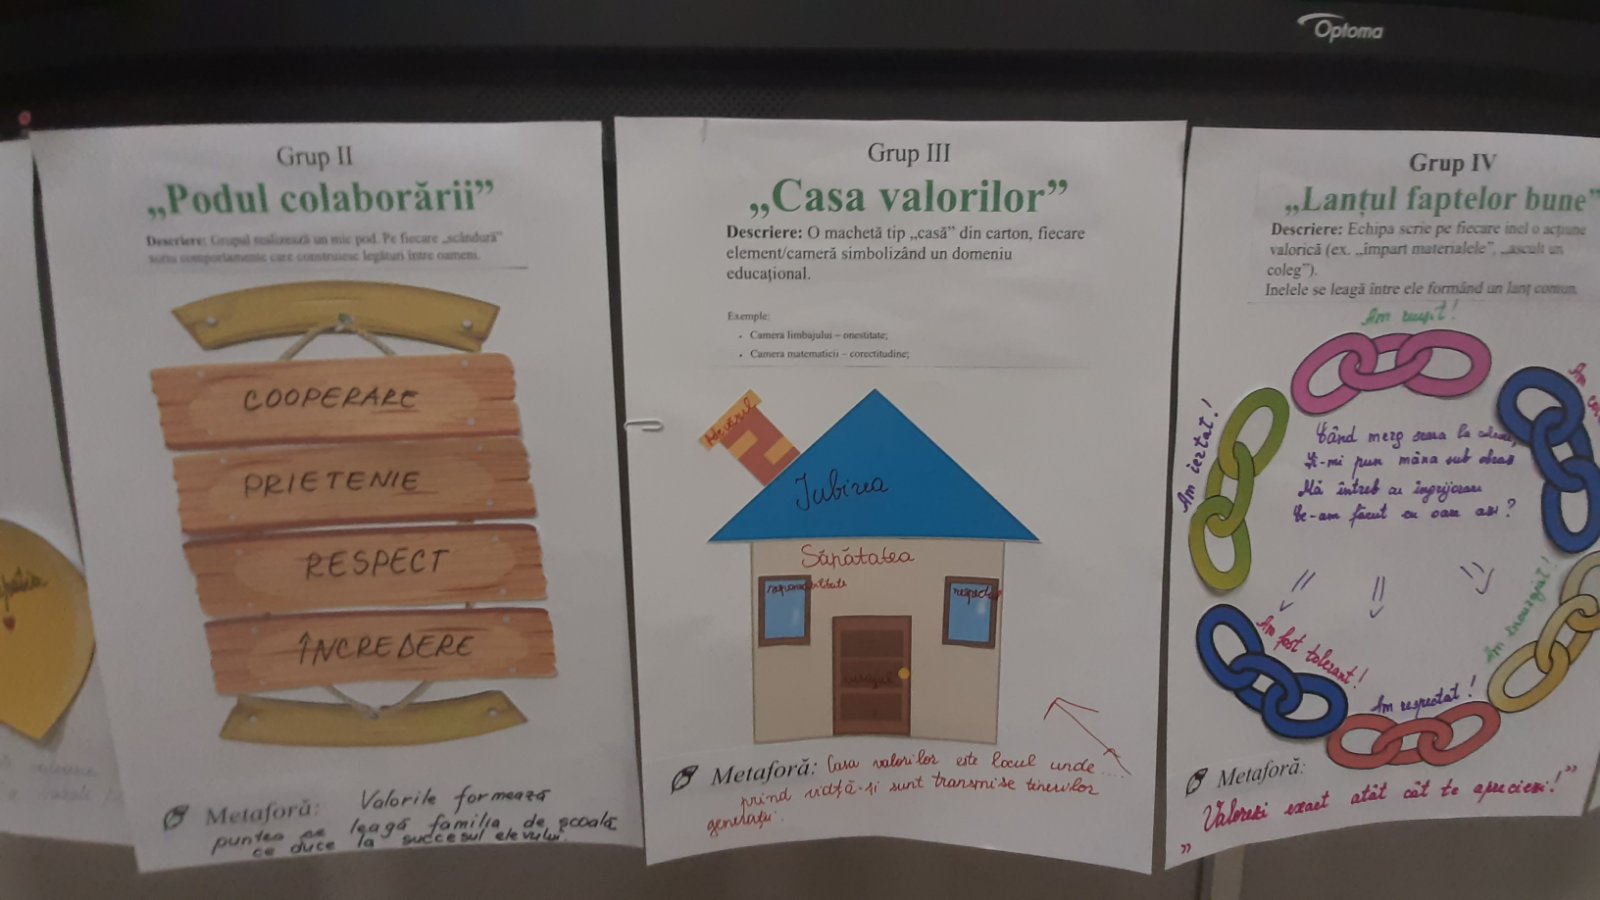 Optoma
Grup II
„Podul colaborării”
Descriere: Grupul realizează un mic pod. Pe fiecare „scândură”
scriu comportamente care construiesc legături între oameni.
COOPERARE
PRIETENIE
RESPECT
ÎNCREDERE
Metaforă: Valorile formează
puntea ce leagă familia de școală
ce duce la succesul elevului.
Grup III
„Casa valorilor”
Descriere: O machetă tip „casă” din carton, fiecare
element/cameră simbolizând un domeniu
educațional.
Exemple:
• Camera limbajului – onestitate;
• Camera matematicii – corectitudine;
Adevărul
Iubirea
Sănătatea
respectul
curajul
Metaforă: Casa valorilor este locul unde ....
prind viață și sunt transmise tinerilor
generații.
Grup IV
„Lanțul faptelor bune”
Descriere: Echipa scrie pe fiecare inel o acțiune
valorică (ex. „împart materialele”, „ascult un
coleg”).
Inelele se leagă între ele formând un lanț comun.
Am reușit!
Am iertat!
Am
Când merg seara la culcare,
Și-mi pun mâna sub obraz
Mă întreb cu îngrijorare
Ce-am făcut eu oare azi?
Am încurajat!
Am fost tolerant!
Am respectat!
Metaforă:
„Valorezi exact atât cât te apreciezi!”